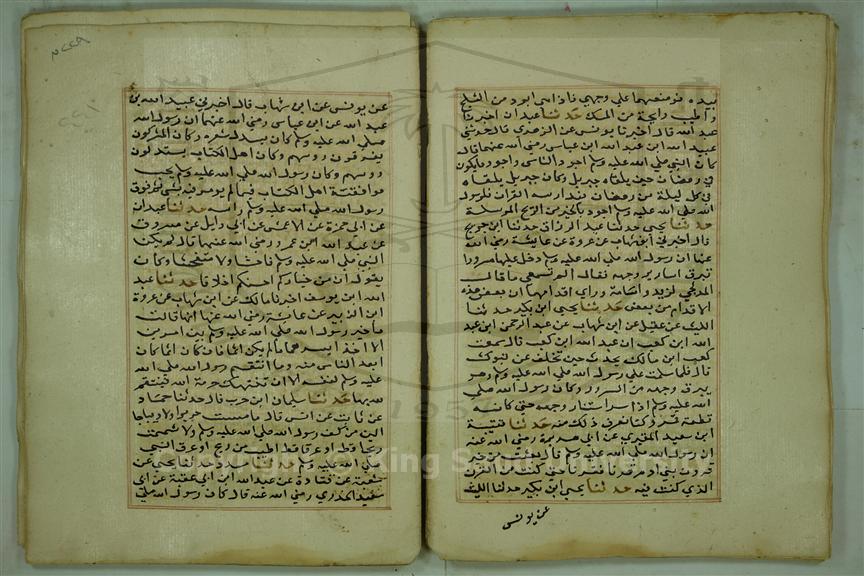 بيده فوضعهما علي وجهي فاذا هي ابرد من الثلج
واطيب رايحة من المسك حدثنا عبدان اخبرنا
عبد الله قال اخبرنا يونس عن الزهري قال حدثني
عبيد الله ابن عبد الله عن ابن عباس رضي الله عنهما قال
كان النبي صلي الله عليه وسلم اجود الناس واجود ما يكون
في رمضان حين يلقاه جبريل وكان جبريل يلقاه
في كل ليلة من رمضان فيدارسه القران فلرسول
الله صلي الله عليه وسلم اجود بالخير من الريح المرسلة
حدثنا يحيي حدثنا عبد الرزاق حدثنا ابن جريج
قال اخبرني ابن شهاب عن عروة عن عايشة رضي الله
عنها ان رسول الله صلي الله عليه وسلم دخل عليها مسرورا
تبرق اسارير وجهه فقال الم تسمعي ما قال
المدلجي لزيد واسامة وراي اقدامهما ان بعض هذه
الاقدام من بعض حدثنا يحيي ابن بكير حدثنا
الليث عن عقيل عن ابن شهاب عن عبد الرحمن ابن عبد
الله ابن كعب ان عبد الله ابن كعب قال سمعت
كعب ابن مالك يحدث حين تخلف عن تبوك
قال فلما سلمت علي رسول الله صلي الله عليه وسلم وهو
يبرق وجهه من السرور وكان رسول الله صلي
الله عليه وسلم اذا سر استنار وجهه حتي كانه
قطعة قمر وكنا نعرف ذلك منه حدثنا قتيبة
ابن سعيد المقبري عن ابي هريرة رضي الله عنه
ان رسول الله صلي الله عليه وسلم قال بعثت من خير
قرون بني ادم قرنا فقرنا حتي كنت من القرن
الذي كنت فيه حدثنا يحيي ابن بكير حدثنا الليث
عن يونس
عن يونس عن ابن شهاب قال اخبرني عبيد الله بن
عبد الله عن ابن عباس رضي الله عنهما ان رسول الله
صلي الله عليه وسلم كان يسدل شعره وكان المشركون
يفرقون روسهم وكان اهل الكتاب يسدلون
روسهم وكان رسول الله صلي الله عليه وسلم يحب
موافقة اهل الكتاب فيما لم يومر فيه بشي ثم فرق
رسول الله صلي الله عليه وسلم راسه حدثنا عبدان
عن ابي حمزة عن الاعمش عن ابي وايل عن مسروق
عن عبد الله ابن عمرو رضي الله عنهما قال لم يكن
النبي صلي الله عليه وسلم فاحشا ولا متفحشا وكان
يقول ان من خياركم احسنكم اخلاقا حدثنا عبد
الله ابن يوسف اخبرنا مالك عن ابن شهاب عن عروة
ابن الزبير عن عايشة رضي الله عنها انها قالت
ما خير رسول الله صلي الله عليه وسلم بين امرين
الا اخذ ايسرهما ما لم يكن اثما فان كان اثما كان
ابعد الناس منه وما انتقم رسول الله صلي الله
عليه وسلم لنفسه الا ان تنتهك حرمة الله فينتقم
لله بها حدثنا سليمان ابن حرب قال حدثنا حماد
عن ثابت عن انس قال ما مسست حريرا ولا ديباجا
الين من كف رسول الله صلي الله عليه وسلم ولا شممت
ريحا قط او عرفا قط اطيب من ريح او عرق النبي
صلي الله عليه وسلم حدثنا مسدد حدثنا يحيي عن
شعبة عن قتادة عن عبد الله ابن ابي عتبة عن ابي
سعيد الخدري رضي الله عنه قال كان رسول الله صلي